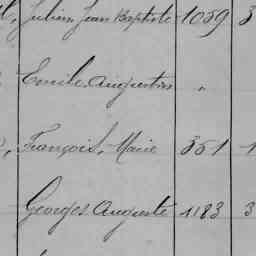 Julien Jean Baptiste 1059 3
Emile Augustin "
François, Marie 351 1
Georges Auguste 1183 3